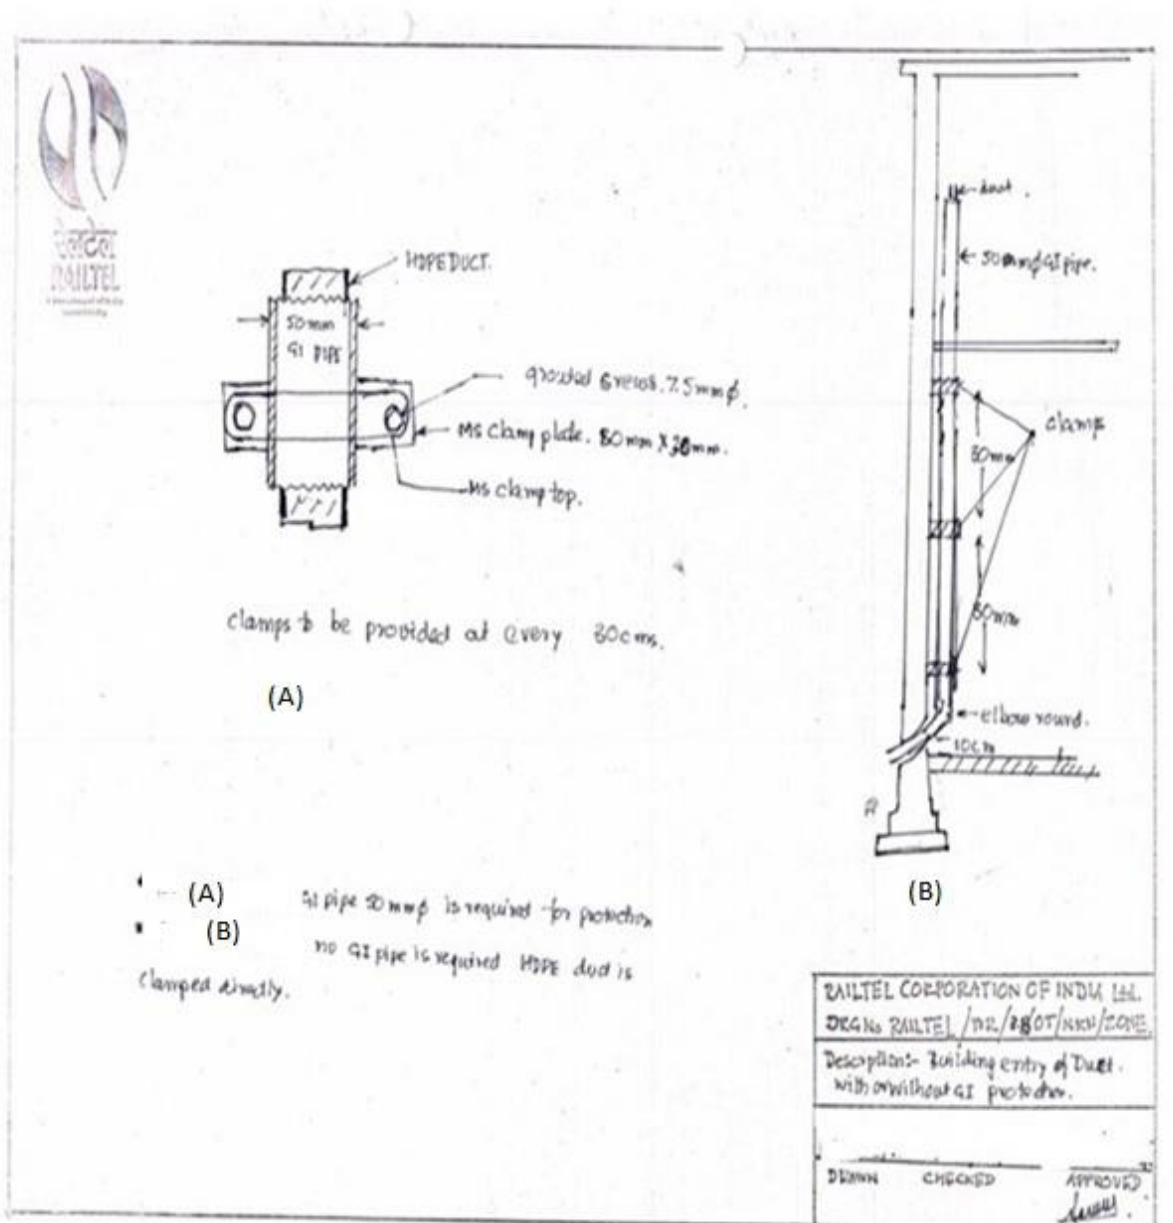 रेलटेल
RAILTEL
HDPE DUCT.
50mm
GI PIPE
grouted screws. 7.5mmφ.
MS Clamp plate. 80mm X 30mm.
MS Clamp top.
clamps to be provided at every 30cms.
(A)
duct.
50mmφ GI pipe.
clamps
30mm
30mm
elbow round.
10cm
(B)
(A) GI pipe 50mmφ is required for protection
(B) no GI pipe is required HDPE duct is
clamped directly.
RAILTEL CORPORATION OF INDIA Ltd.
DRG No RAILTEL /OT/NKN/ZONE.
Description:- Building entry of Duct.
with or without GI protection.
DRAWN CHECKED APPROVED